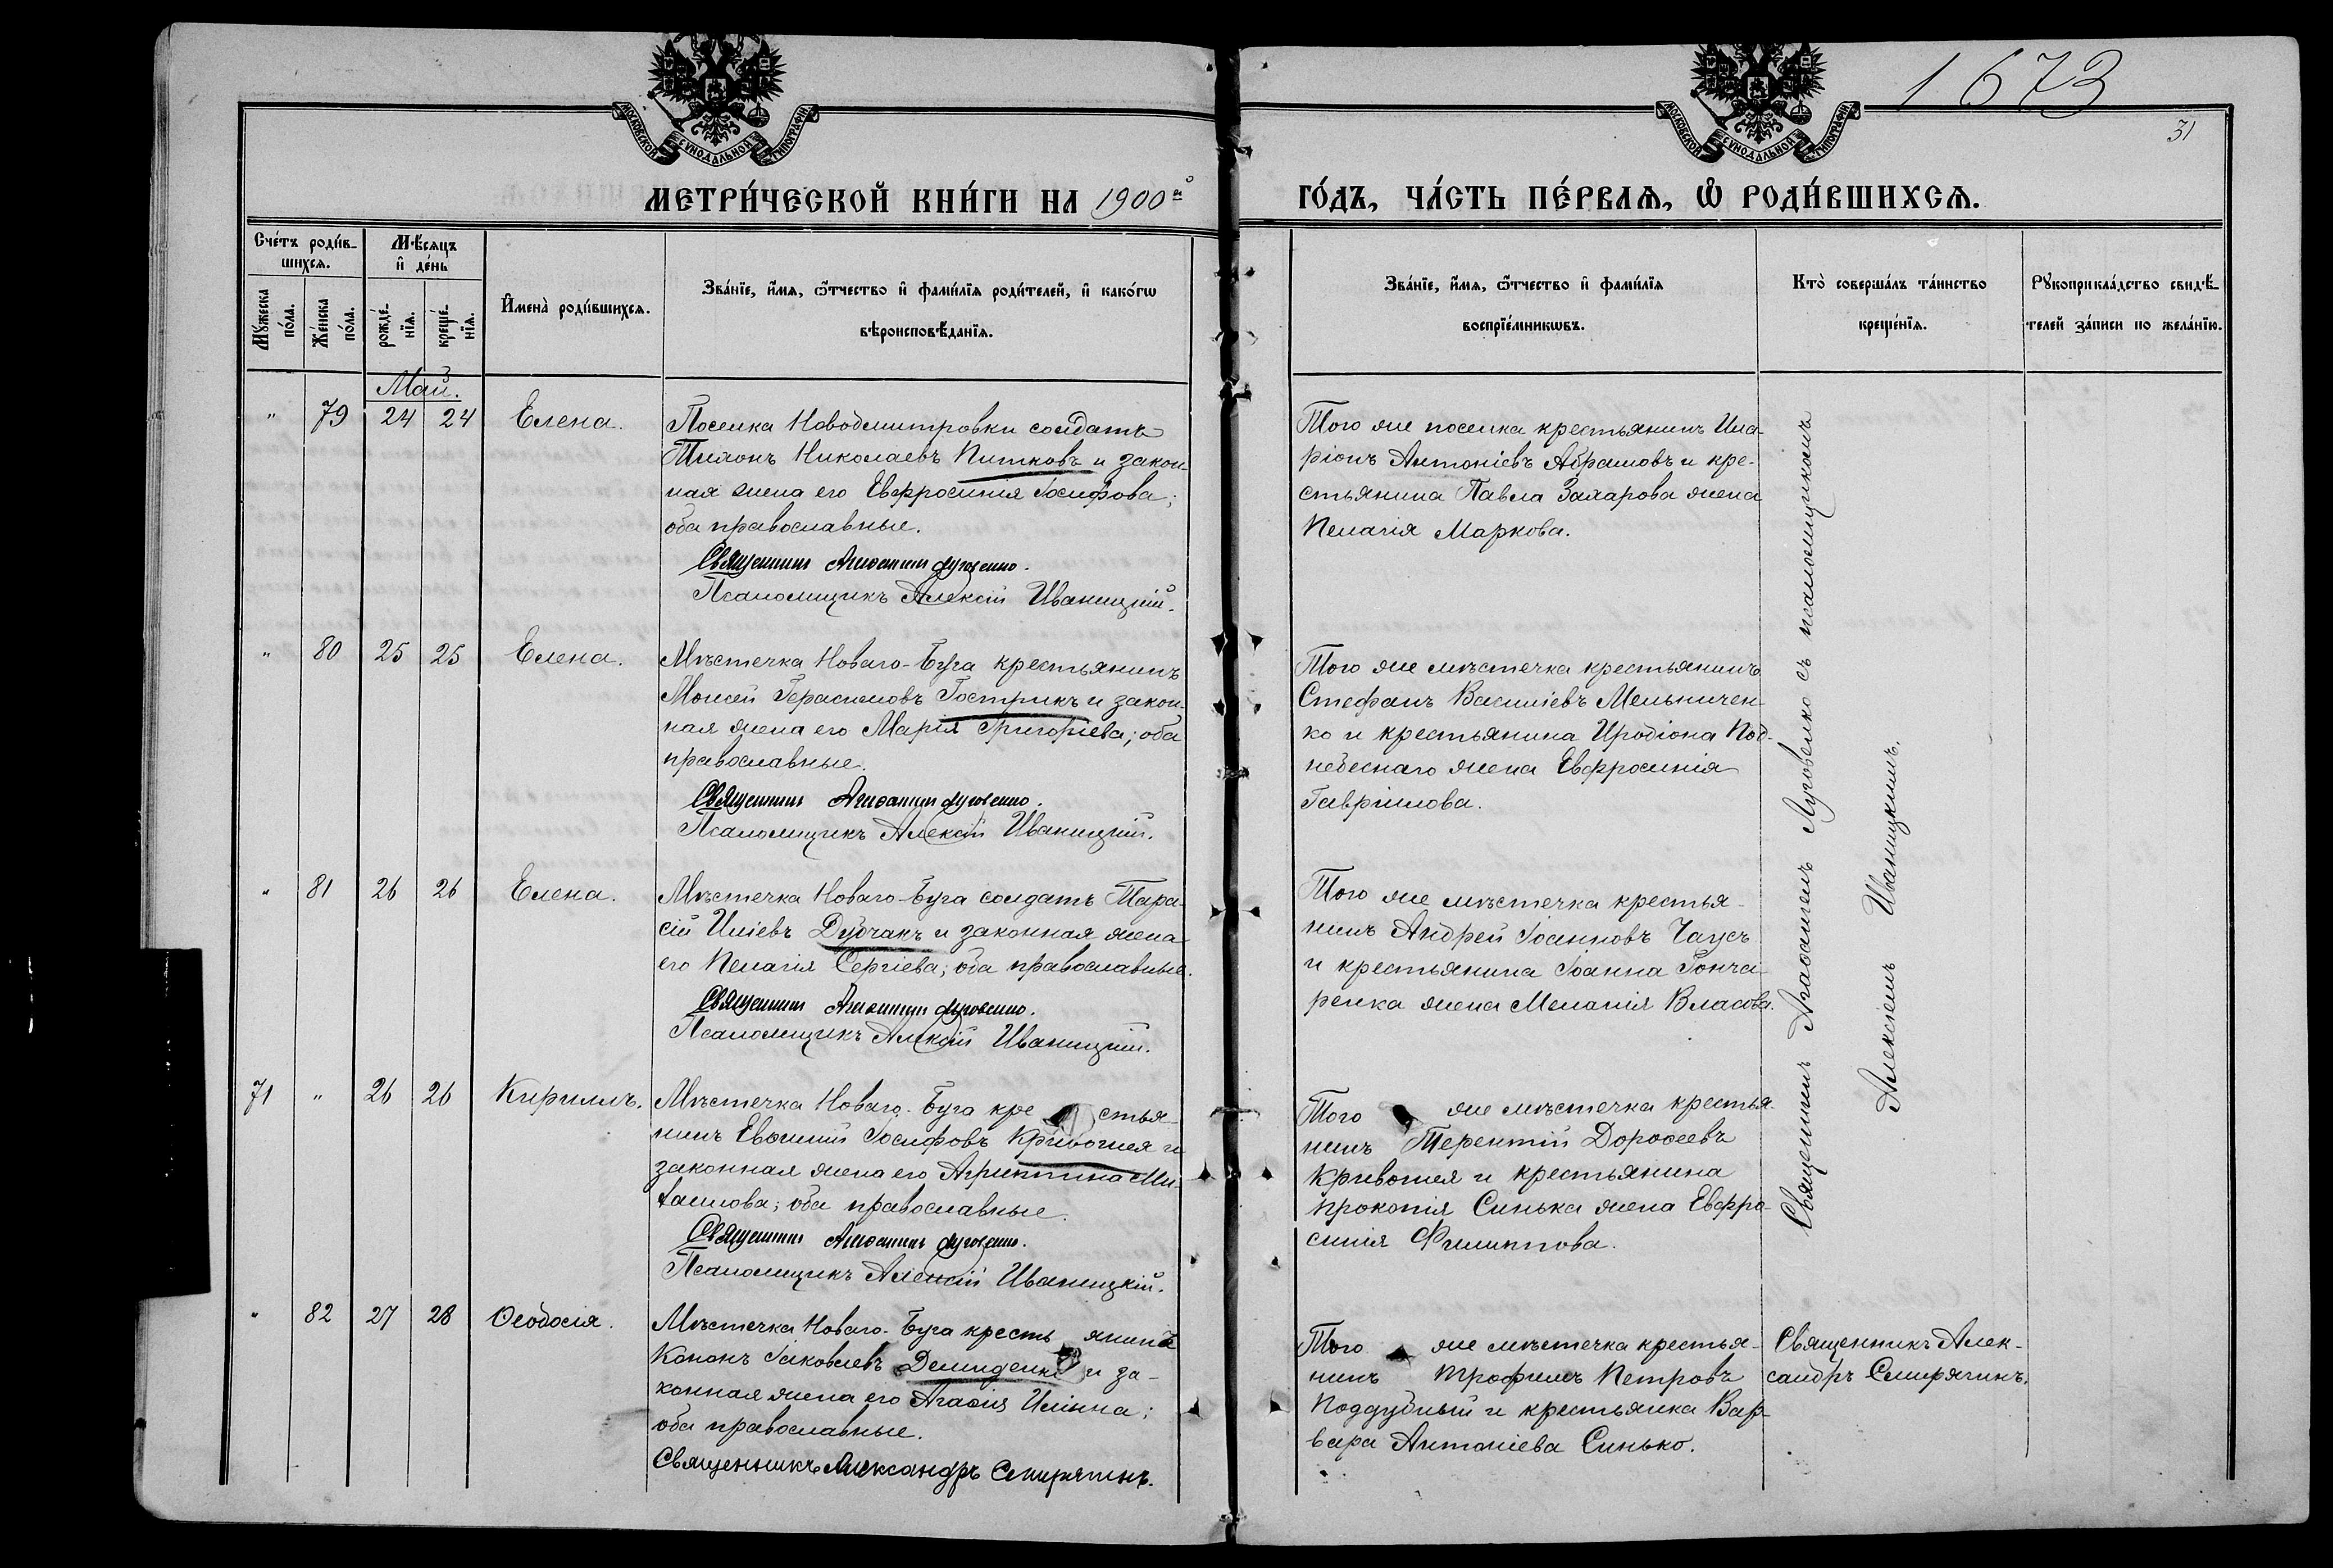 1673
31
МОСКОВСКОЙ СѴНОДАЛЬНОЙ ТИПОГРАФІИ
МОСКОВСКОЙ СѴНОДАЛЬНОЙ ТИПОГРАФІИ
МЕТРИ́ЧЕСКОЙ КНИ́ГИ НА 1900й
ГО́ДЪ, ЧА́СТЬ ПЕ́РВАѦ, Ѡ҆ РОДИ́ВШИХСѦ.
Сче́тъ роди́в-
шихсѧ.
Мѣ́сѧцъ
и҆ де́нь
Мꙋ́жеска по́ла.
Же́нска по́ла.
рожде́-
нїѧ.
креще́-
нїѧ.
И҆мена̀ роди́вшихсѧ.
Зва́нїе, и҆́мѧ, ѻ҆́тчество и҆ фами́лїѧ роди́телей, и҆ како́гѡ
вѣроисповѣ́данїѧ.
Зва́нїе, и҆́мѧ, ѻ҆́тчество и҆ фами́лїѧ
воспрїе́мникѡвъ.
Кто̀ соверша́лъ та́инство
креще́нїѧ.
Рꙋкоприкла́дство свидѣ́-
телей за́писи по жела́нїю.
Май.
" 79 24 24 Елена.
Поселка Новодмитровки солдатъ
Тимонъ Николаевъ Питковъ и закон
ная жена его Евфросинія Іосифова;
оба православные.
Священникъ Агафангелъ Луговенко.
Псаломщикъ Алексій Иваницкій.
Того же поселка крестьянинъ Ила-
ріонъ Антоніевъ Абрамовъ и кре-
стьянина Павла Захарова жена
Пелагія Маркова.
" 80 25 25 Елена.
Мѣстечка Новаго-Буга крестьянинъ
Моисей Герасимовъ Гострикъ и закон-
ная жена его Марія Григоріева; оба
православные.
Священникъ Агафангелъ Луговенко.
Псаломщикъ Алексій Иваницкій.
Того же мѣстечка крестьянинъ
Стефанъ Василіевъ Мельничен-
ко и крестьянина Иродіона Под-
небеснаго жена Евфросинія
Гавріилова.
" 81 26 26 Елена.
Мѣстечка Новаго-Буга солдатъ Тара-
сій Иліевъ Дубчакъ и законная жена
его Пелагія Сергіева; оба православные.
Священникъ Агафангелъ Луговенко.
Псаломщикъ Алексій Иваницкій.
Того же мѣстечка крестья-
нинъ Андрей Іоанновъ Чаусъ
и крестьянина Іоанна Гонча-
ренка жена Меланія Власова.
71 " 26 26 Кириллъ.
Мѣстечка Новаго-Буга кре стья-
нинъ Евѳимій Іосифовъ Кривошея и
законная жена его Агриппина Ми-
хаилова; оба православные.
Священникъ Агафангелъ Луговенко.
Псаломщикъ Алексій Иваницкій.
Того же мѣстечка крестья-
нинъ Терентій Дороѳеевъ
Кривошея и крестьянина
Прокопія Синька жена Евфро-
синія Филиппова.
Священникъ Агаѳангелъ Луговенко съ псаломщикомъ
Алексіемъ Иваницкимъ.
" 82 27 28 Ѳеодосія.
Мѣстечка Новаго-Буга кресть янинъ
Кононъ Іаковлевъ Демиденко и за-
конная жена его Агаѳія Илінна;
оба православные.
Священникъ Александръ Смирягинъ.
Того же мѣстечка крестья-
нинъ Трофимъ Петровъ
Поддубный и крестьянка Вар-
вара Антоніева Синько.
Священникъ Алек-
сандръ Смирягинъ.